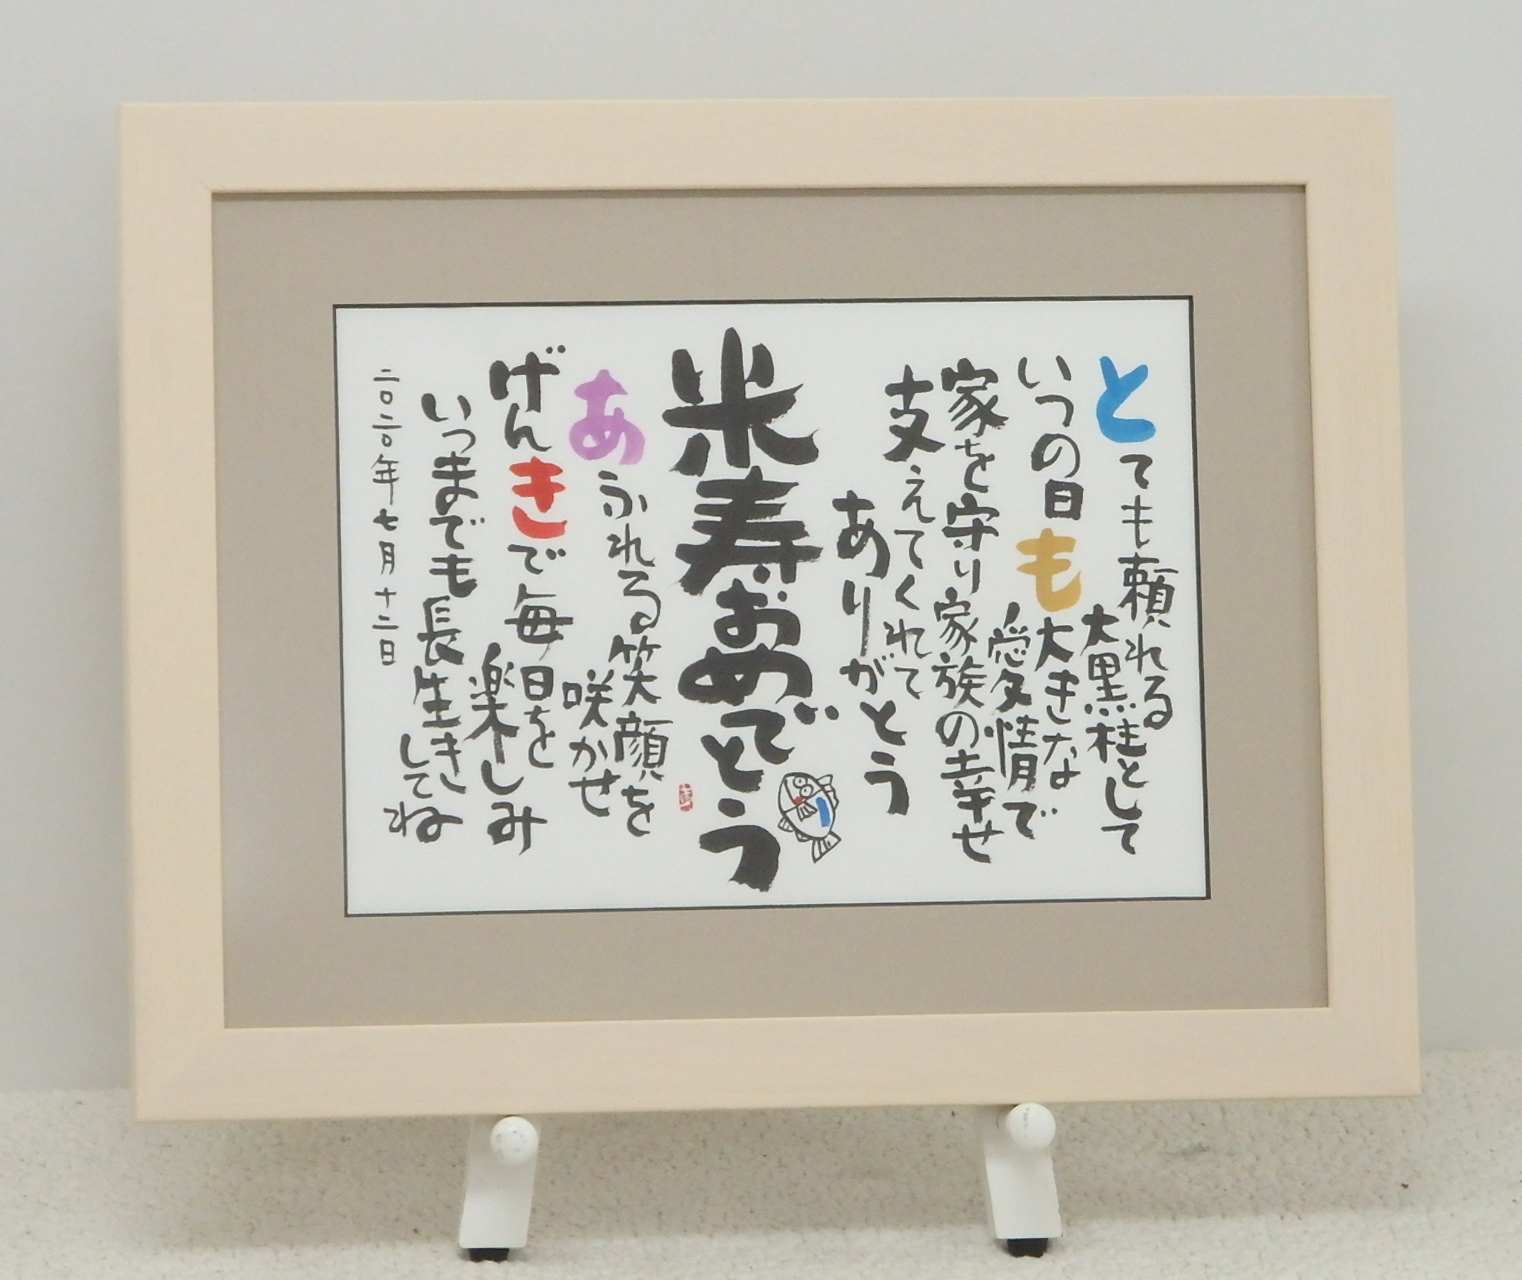 とても頼れる
大黒柱として
いつの日も大きな
愛情で
家を守り家族の幸せ
支えてくれて
ありがとう
米寿おめでとう
あふれる笑顔を
咲かせ
げんきで毎日を
楽しみ
いつまでも長生きしてね
二〇二〇年七月十二日